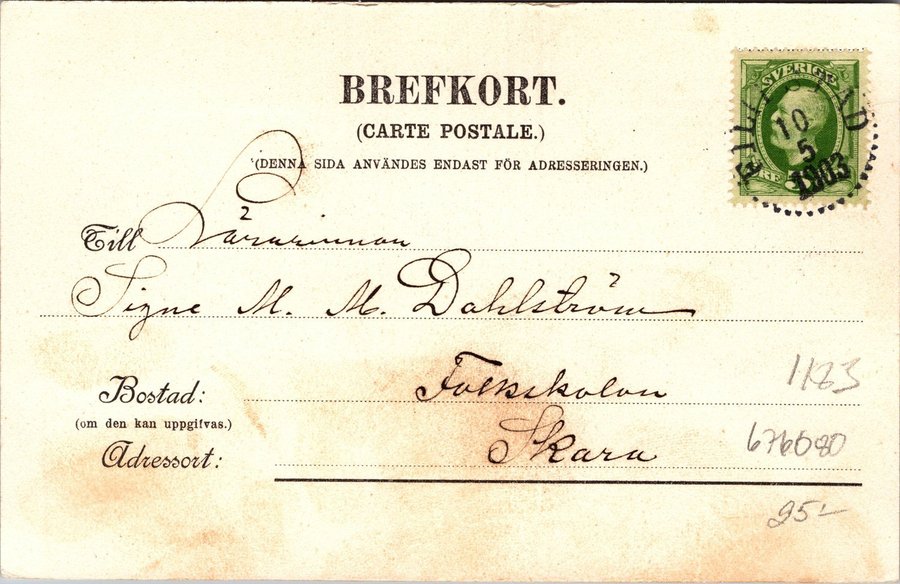 BREFKORT.
(CARTE POSTALE.)
(DENNA SIDA ANVÄNDES ENDAST FÖR ADRESSERINGEN.)
SVERIGE
10
5
1903
Till Lärarinnan
Signe M. M. Dahlström
Bostad: Folkskolan
(om den kan uppgifvas.)
Adressort: Skara
1183
676080
25-